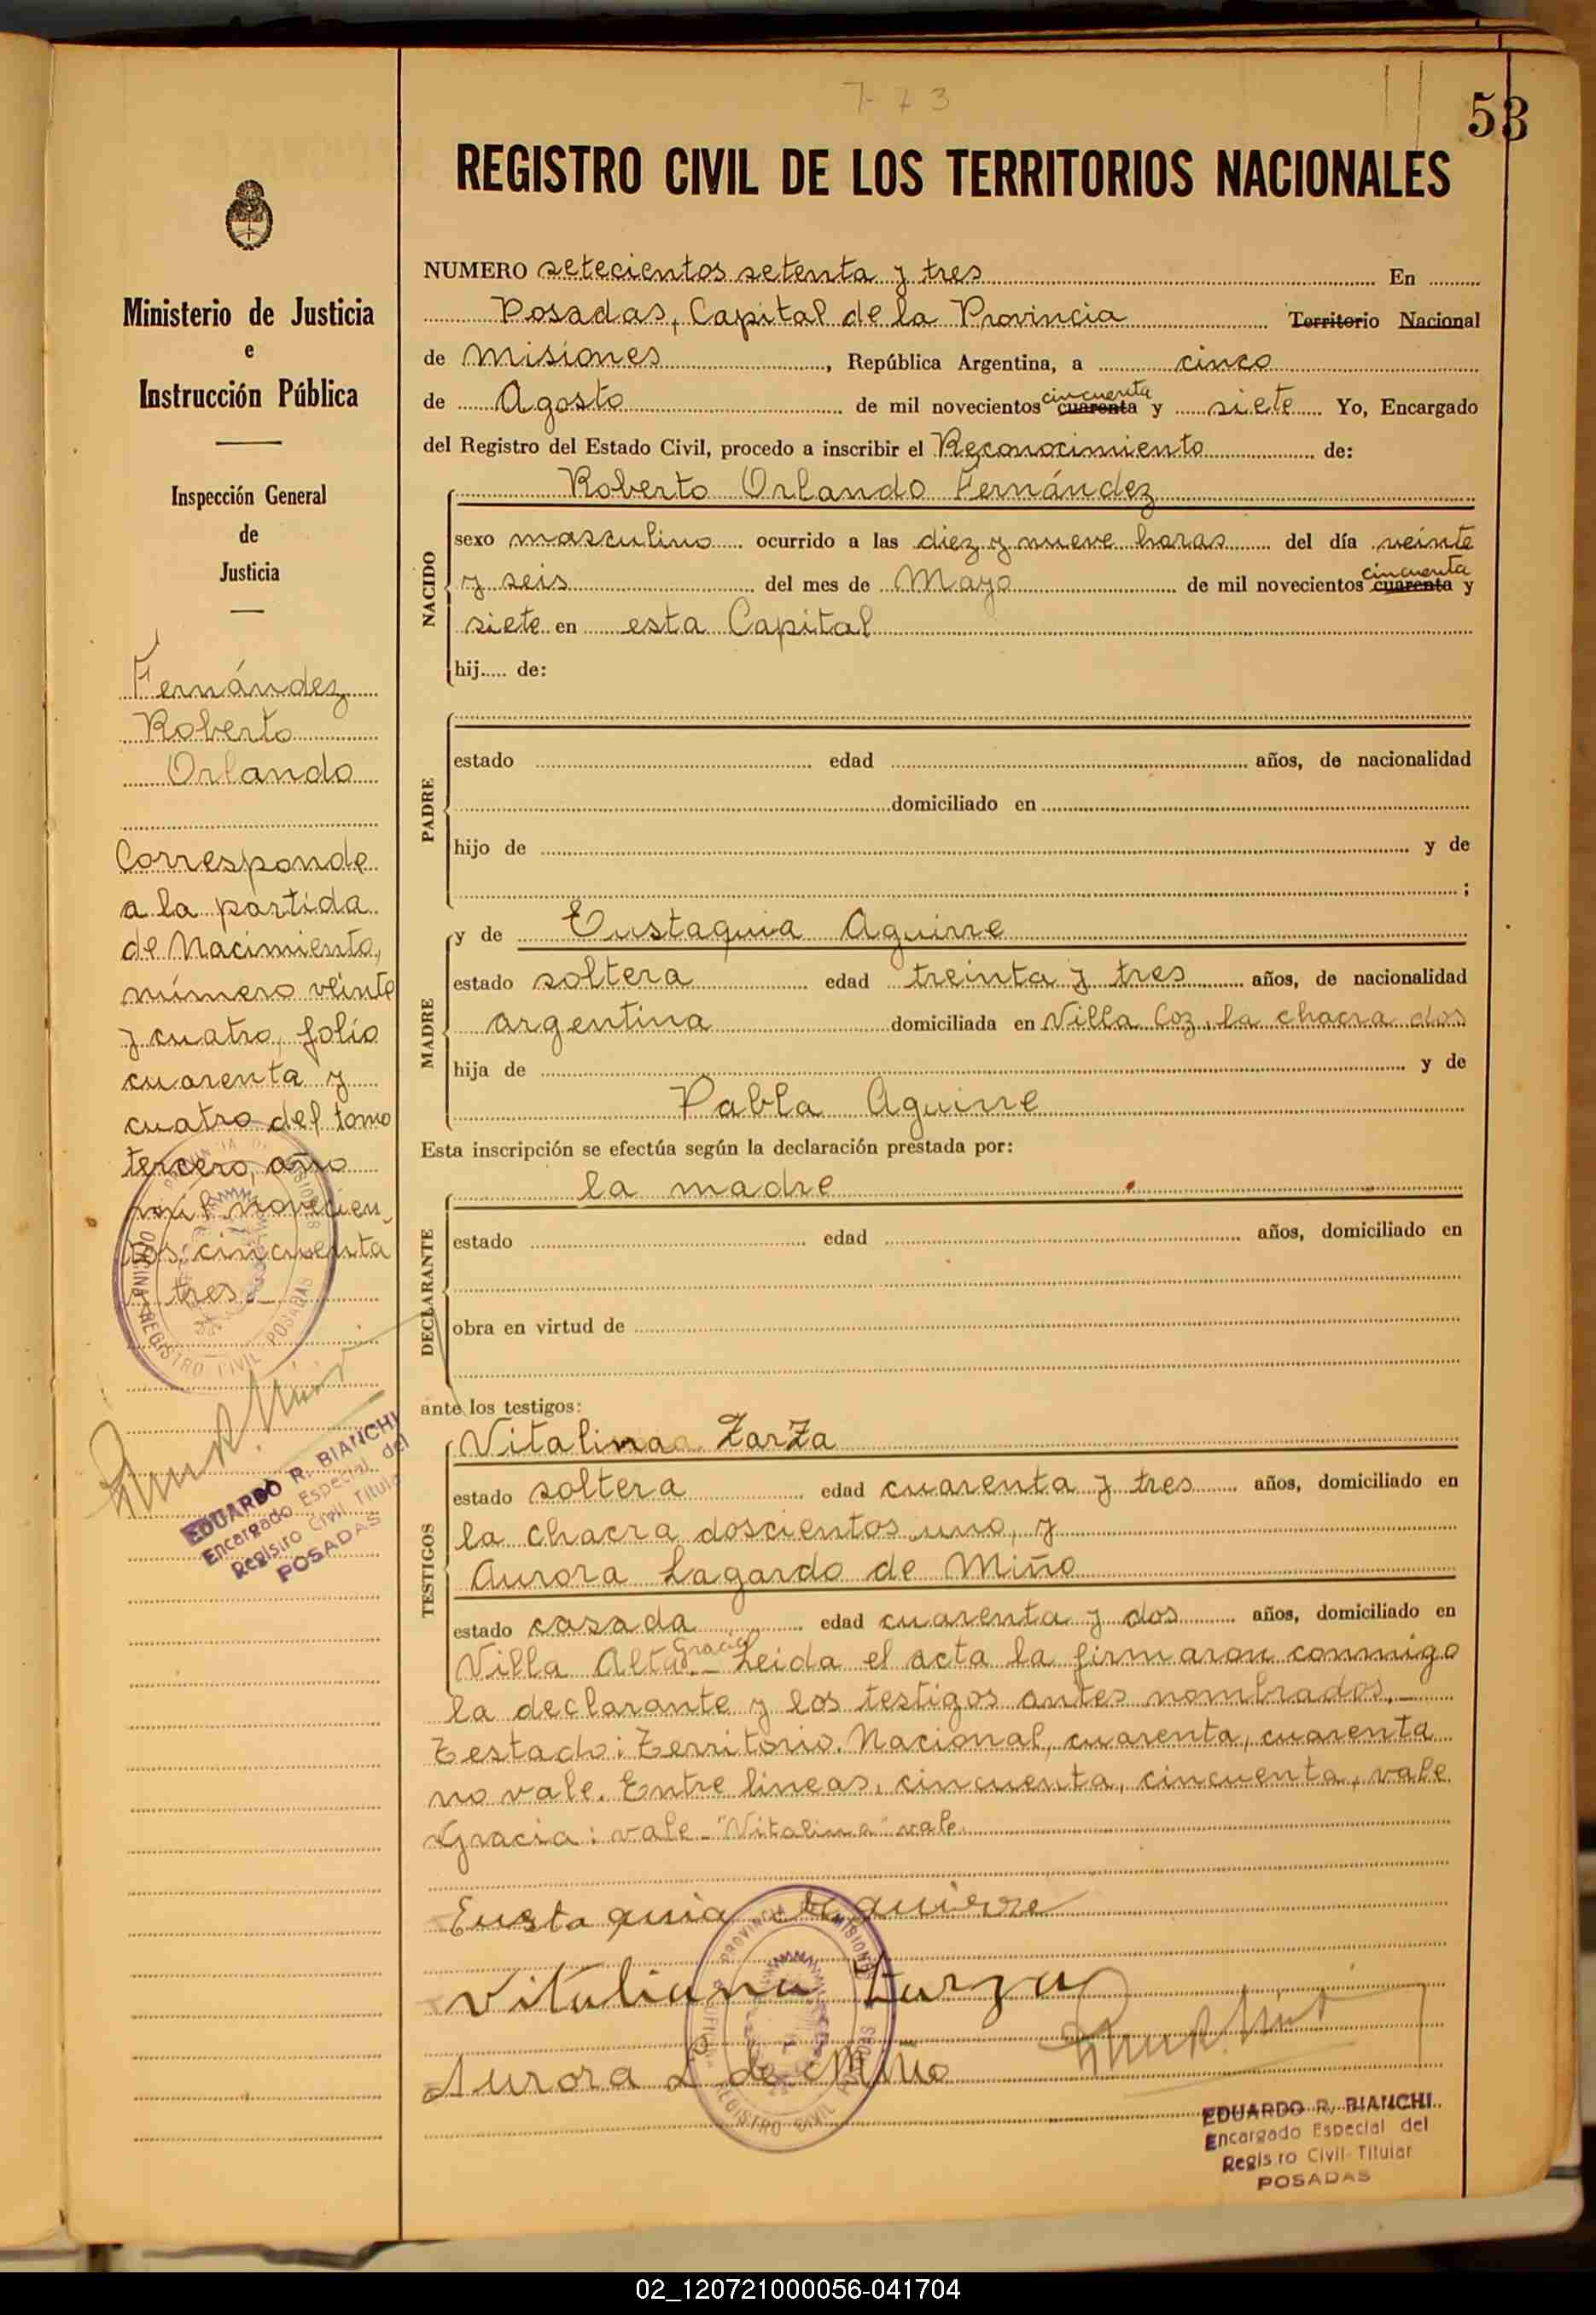 7 7 3
53
REGISTRO CIVIL DE LOS TERRITORIOS NACIONALES
Ministerio de Justicia
e
Instrucción Pública
Inspección General
de
Justicia
Fernández
Roberto
Orlando
Corresponde
a la partida
de Nacimiento,
número veinte
y cuatro, folio
cuarenta y
cuatro del tomo
tercero, año
mil novecien
tos cincuenta
y tres.-
EDUARDO R. BIANCHI
Encargado Especial del
Registro Civil Titular
POSADAS
NUMERO setecientos setenta y tres En
Posadas, Capital de la Provincia Territorio Nacional
de Misiones, República Argentina, a cinco
de Agosto de mil novecientos cuarenta cincuenta y siete Yo, Encargado
del Registro del Estado Civil, procedo a inscribir el Reconocimiento de:
Roberto Orlando Fernández
NACIDO
sexo masculino ocurrido a las diez y nueve horas del día veinte
y seis del mes de Mayo de mil novecientos cuarenta cincuenta y
siete en esta Capital
hij..... de:
PADRE
estado edad años, de nacionalidad
domiciliado en
hijo de y de
;
MADRE
y de Eustaquia Aguirre
estado soltera edad treinta y tres años, de nacionalidad
argentina domiciliada en Villa Coz, la chacra dos
hija de y de
Pabla Aguirre
Esta inscripción se efectúa según la declaración prestada por:
DECLARANTE
la madre
estado edad años, domiciliado en
obra en virtud de
ante los testigos:
TESTIGOS
Vitalina Zarza
estado soltera edad cuarenta y tres años, domiciliado en
la chacra doscientos uno, y
Aurora Lagardo de Miño
estado casada edad cuarenta y dos años, domiciliado en
Villa Alta Gracia.- Leida el acta la firmaron conmigo
la declarante y los testigos antes nombrados.-
Testado: Territorio Nacional, cuarenta, cuarenta
no vale. Entre lineas, cincuenta, cincuenta, vale
Gracia: vale - "Vitalina" vale.
Eustaquia Aguirre
Vitaliana Zarza
Aurora L de Miño
PROVINCIA DE MISIONES
REGISTRO CIVIL POSADAS
EDUARDO R. BIANCHI
Encargado Especial del
Regis ro Civil Titular
POSADAS
02_120721000056-041704